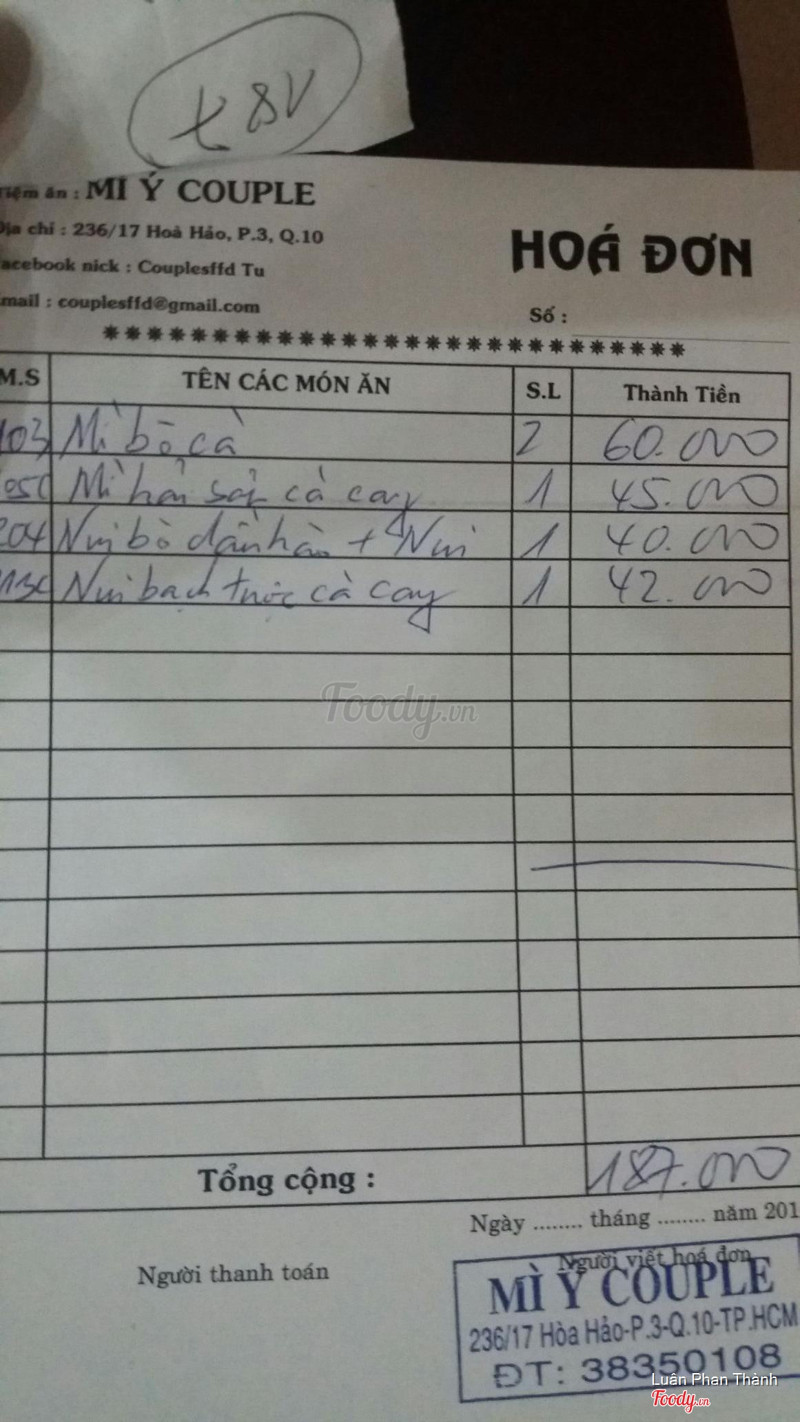 Tiệm ăn : MÌ Ý COUPLE
Địa chỉ : 236/17 Hoà Hảo, P.3, Q.10
Facebook nick : Couplesffd Tu
Email : couplesffd@gmail.com
HOÁ ĐƠN
Số :
M.S TÊN CÁC MÓN ĂN S.L Thành Tiền
103 Mì bò cà 2 60.000
Mì hải sản cà cay 1 45.000
204 Nui bò đần hàn + Nui 1 40.000
Nui bạch tuộc cà cay 1 42.000
Foody.vn
Tổng cộng : 187.000
Ngày ........ tháng ........ năm 201
Người thanh toán
Người viết hoá đơn
MÌ Ý COUPLE
236/17 Hòa Hảo-P.3-Q.10-TP.HCM
ĐT: 38350108
Luân Phan Thành
Foody.vn